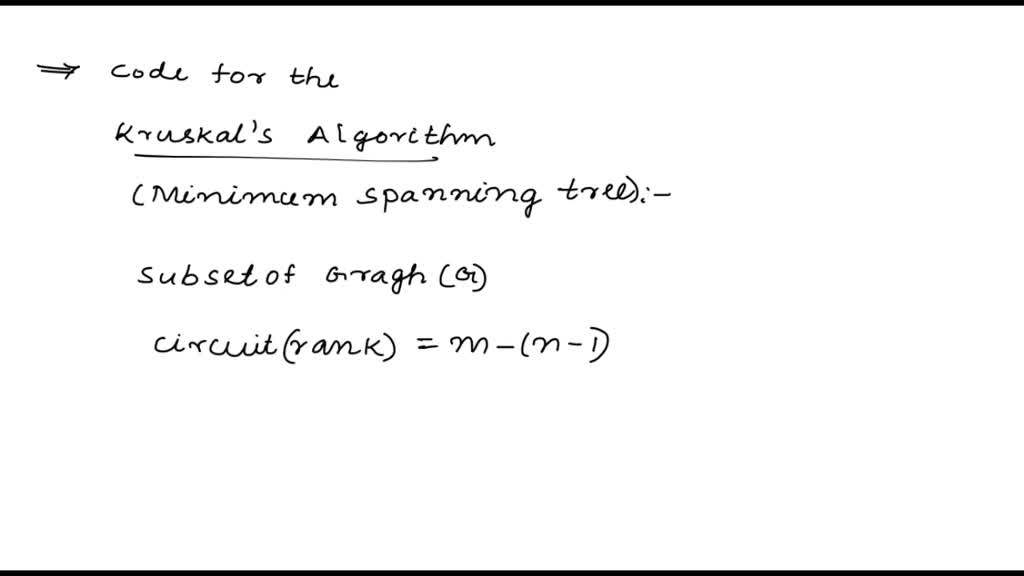 ⇒ code for the
Kruskal's Algorithm
(Minimum spanning tree):-
subset of Gragh (G)
circuit (rank) = m - (n - 1)